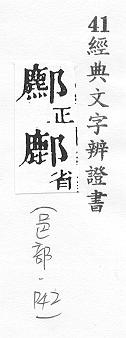 41經典文字辨證書
正
鄜省
(邑部.P42)